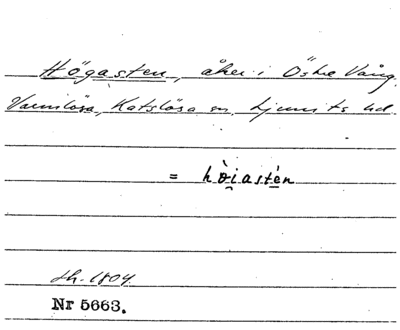 Högasten, åker i Östre Vång.
Varnlösa, Katslösa sn, Ljunits hd.
= hø̀i̯astén
sh. 1804
Nr 5663.